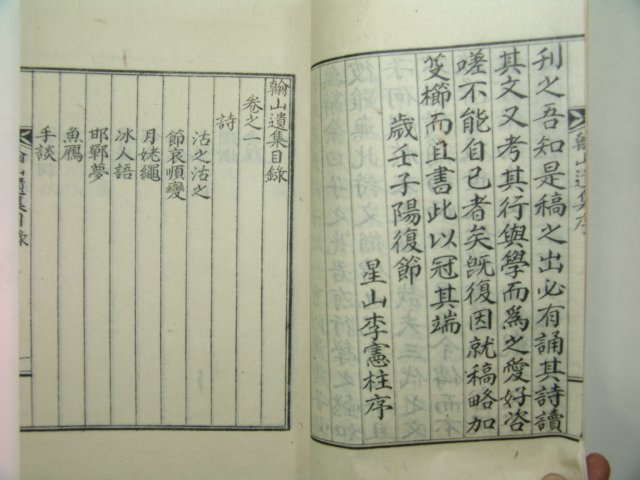 刊之吾知是稿之出必有誦其詩讀
其文又考其行與學而爲之愛好咨
嗟不能自已者矣旣復因就稿略加
笅櫛而且書此以冠其端
歲壬子陽復節
星山李憲柱序
翰山遺集序
翰山遺集目錄
卷之一
詩
沽之沽之
節哀順變
月姥繩
冰人語
邯鄲夢
魚鴈
手談
翰山遺集目錄
一